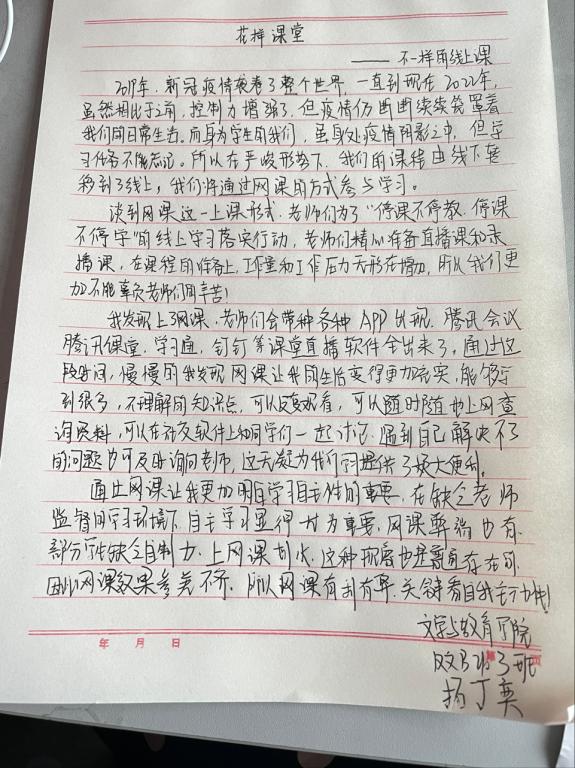 花样课堂
——不一样的线上课
2019年,新冠疫情袭卷了整个世界,一直到现在2022年,
虽然相比于之前,控制力增强了,但疫情仍断断续续笼罩着
我们的日常生活。而身为学生的我们,虽身处疫情阴影之中,但学
习任务不能忘记,所以在严峻形势下,我们的课程由线下转
移到了线上,我们将通过网课的方式参与学习。
谈到网课这一上课形式,老师们为了“停课不停教,停课
不停学”的线上学习落实行动,老师们精心准备直播课和录
播课,在课程的准备上,工作量和工作压力无形在增加,所以我们更
加不能辜负老师们的辛苦!
我发现上了网课,老师们会带种各种APP出现,腾讯会议
腾讯课堂,学习通,钉钉等课堂直播软件全出来了,通过这
段时间,慢慢的我发现网课让我的生活变得更加充实,能够学
到很多,不理解的知识点,可以反复观看,可以随时随地上网查
询资料,可以在社交软件上和同学们一起讨论,遇到自己解决不了
的问题也可及时询问老师,这无疑为我们提供了极大便利。
通过网课让我更加明白学习自主性的重要,在缺乏老师
监督的学习环境下,自主学习显得尤为重要,网课弊端也有,
部分学生缺乏自制力,上网课划水,这种现象也是普遍存在的,
因此网课效果参差不齐,所以网课有利有弊,关键看自我主动性!
文学与教育学院
3班
杨丁奕
年 月 日